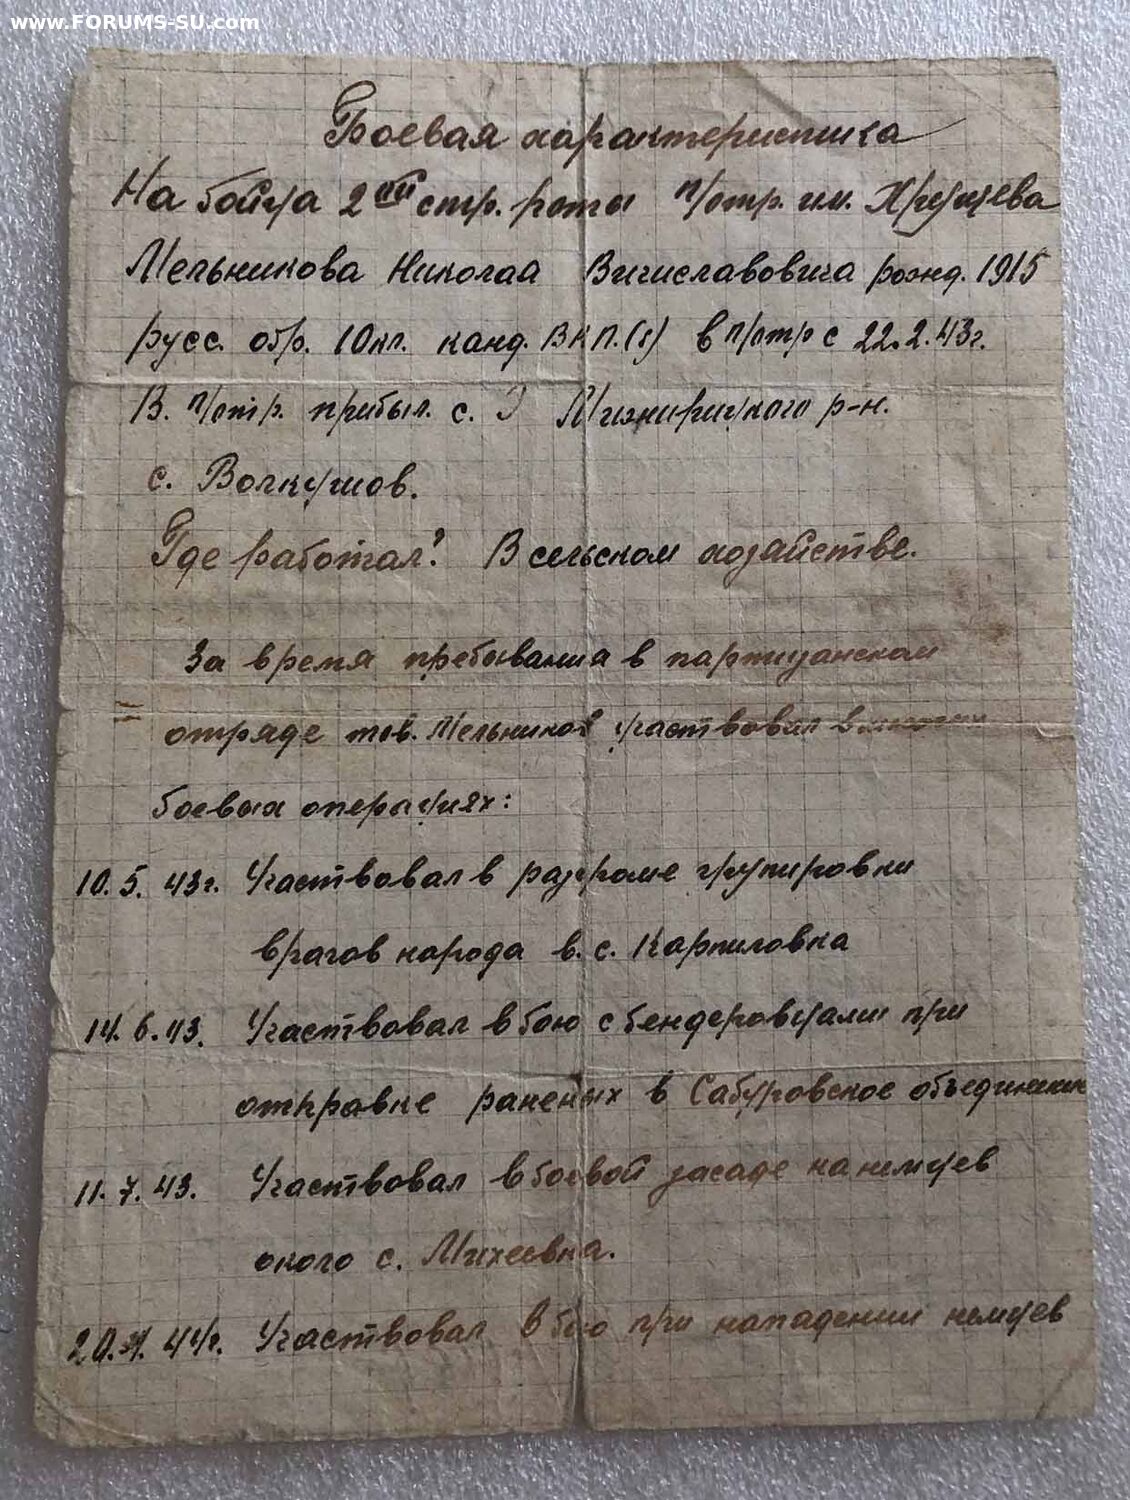 www.FORUMS-SU.com
Боевая характеристика
На бойца 2ой стр. роты п/отр. им. Хрущева
Мельникова Николая Вичиславовича рожд. 1915
русс. обр. 10 кл. канд. ВКП.(б) в п/отр с 22.2.43г.
В. п/отр. прибыл. с. р-н.
с. Волкушов.
Где работал? В сельском хозяйстве.
За время пребывания в партизанском
отряде тов. Мельников участвовал в
боевых операциях:
10.5.43г. Участвовал в разгроме групировки
врагов народа в. с. Карпиловка
14.6.43. Участвовал в бою с бендеровцами при
отправке раненых в Сабуровское
11.7.43. Участвовал в боевой засаде на немцев
около с. Михеевка.
44г. Участвовал в бою при нападении немцев